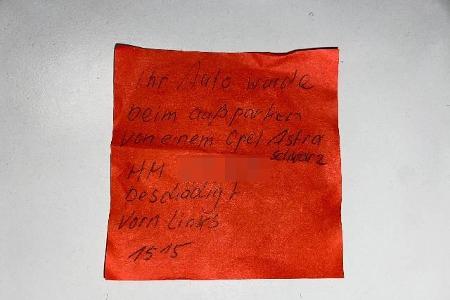 Ihr Auto wurde
beim außparken
von einem Opel Astra
schwarz
HM
beschädigt
Vorn Links
1515